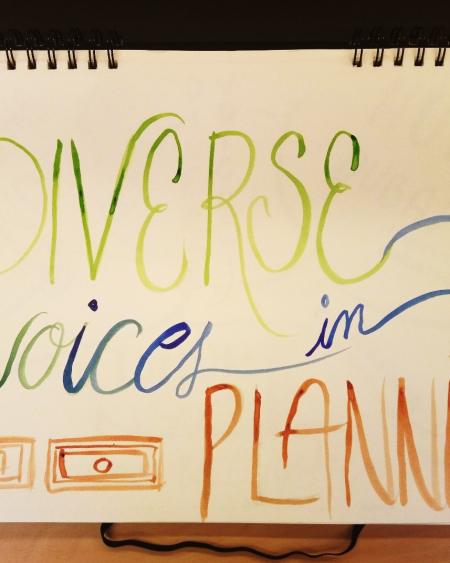 DIVERSE
voices in
PLANN